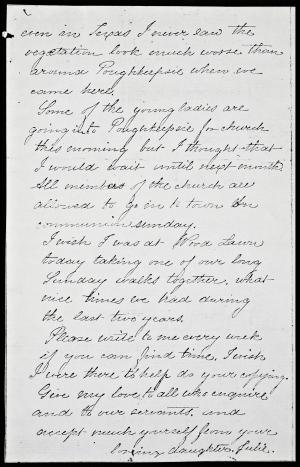 even in Texas I never saw the
vegetation look much worse than
around Poughkeepsie when we
came here.
Some of the young ladies are
going into Poughkeepsie for church
this morning but I thought that
I would wait until next month.
All members of the church are
allowed to go in to town on
communion sunday.
I wish I was at Wood Lawn
today taking one of our long
Sunday walks together, what
nice times we had during
the last two years.
Please write to me every week
if you can find time, I wish
I were there to help do your copying.
Give my love to all who enquire
and to our servants, and
accept much yourself from your
loving daughter, Julie.